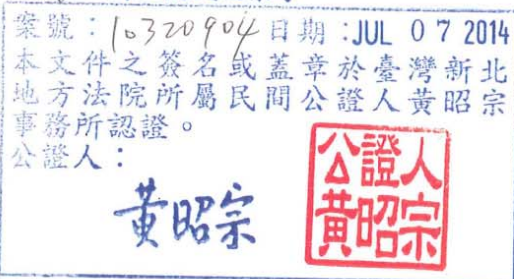 案號：10320904日期：JUL 07 2014
本文件之簽名或蓋章於臺灣新北
地方法院所屬民間公證人黃昭宗
事務所認證。
公證人：
黃昭宗
公證人
黃昭宗